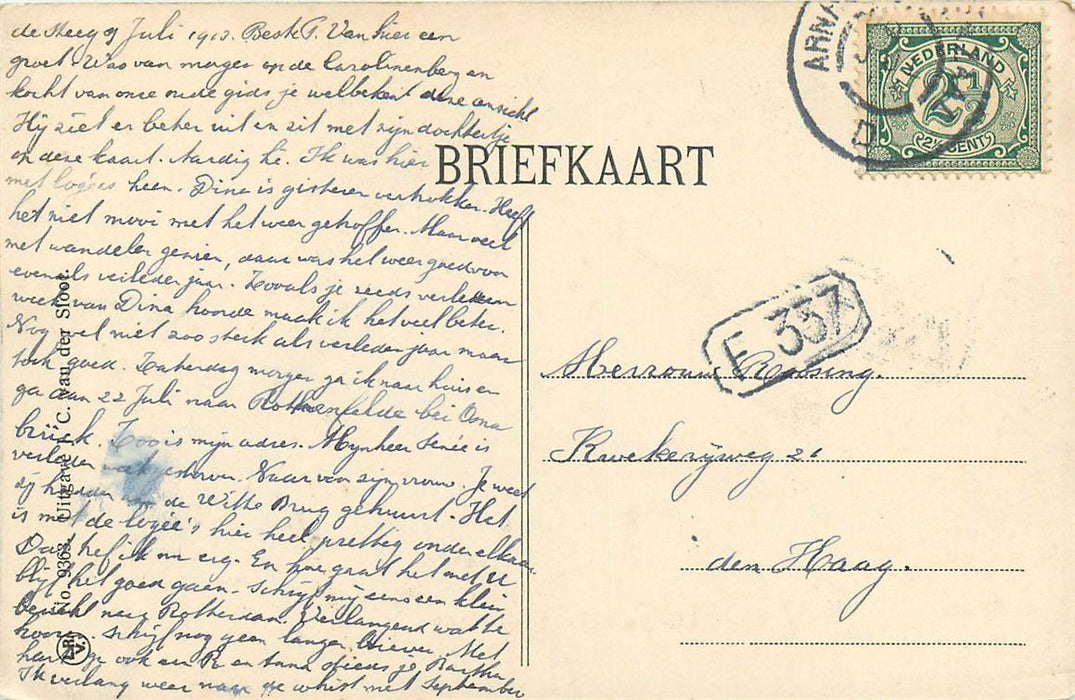 de Steeg 9 Juli 1910. Beste P. Van hier een
groet. Was van morgen op de Carolinenberg en
kocht van onze oude gids je welbekent deze ansicht
Hij ziet er beter uit en zit met zijn dochtertje
op deze kaart. Aardig hè. Ik was hier
met logées heen. Dina is gisteren vertrokken. Heeft
het niet mooi met het weer getroffen. Maar veel
met wandelen genoten, daar was het weer goed voor
evenals verleden jaar. Zooals je reeds verleden
week van Dina hoorde maak ik het veel beter.
Nog wel niet zoo sterk als verleden jaar maar
toch goed. Zaterdag morgen ga ik naar huis en
ga dan 22 Juli naar Rothenfelde bei Osna
brück. Zoo is mijn adres. Mynheer is
verleden week gestorven. Naar voor zijn vrouw. Je weet
zij hadden de Witte Brug gehuurd. Het
is met de logée's hier heel prettig onder elkaar.
Dat heb ik nu erg. En hoe gaat het met U
blijf het goed gaan. Schrijf mij eens een klein
bericht naar Rotterdam. Verlangend wat te
hooren. Schrijf nog geen lange brieven. Met
hartelijke
Ik verlang weer naar de whist met September
BRIEFKAART
No. 9363. Uitgave J. C. van der Sloot.
ARN
NEDERLAND
2½
2½ CENT
F 337
Mevrouw Robsing.
Kweekerijweg 26
den Haag.